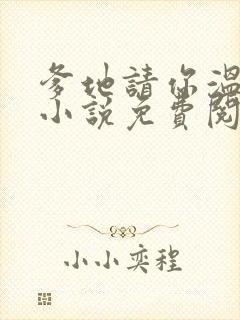 爹地請你溫
小説免費閱
小小奕程